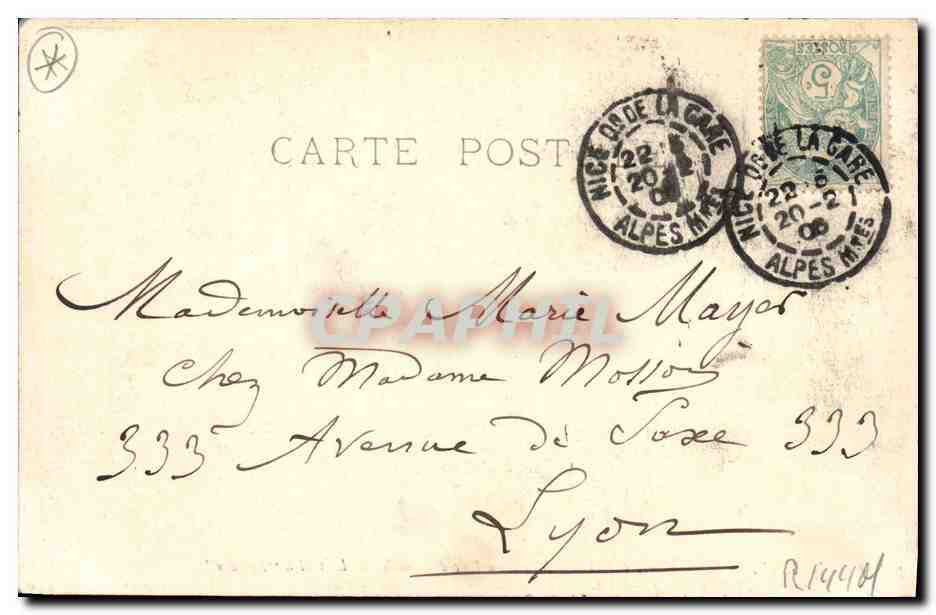 CARTE POST
POSTES
5
NICE Qr DE LA GARE
22
20
ALPES Mmes
NICE Qr DE LA GARE
22
20-2
06
ALPES Mmes
CPAPHIL
Mademoiselle Marie Mayer
Chez Madame
333 Avenue de Saxe 333
Lyon